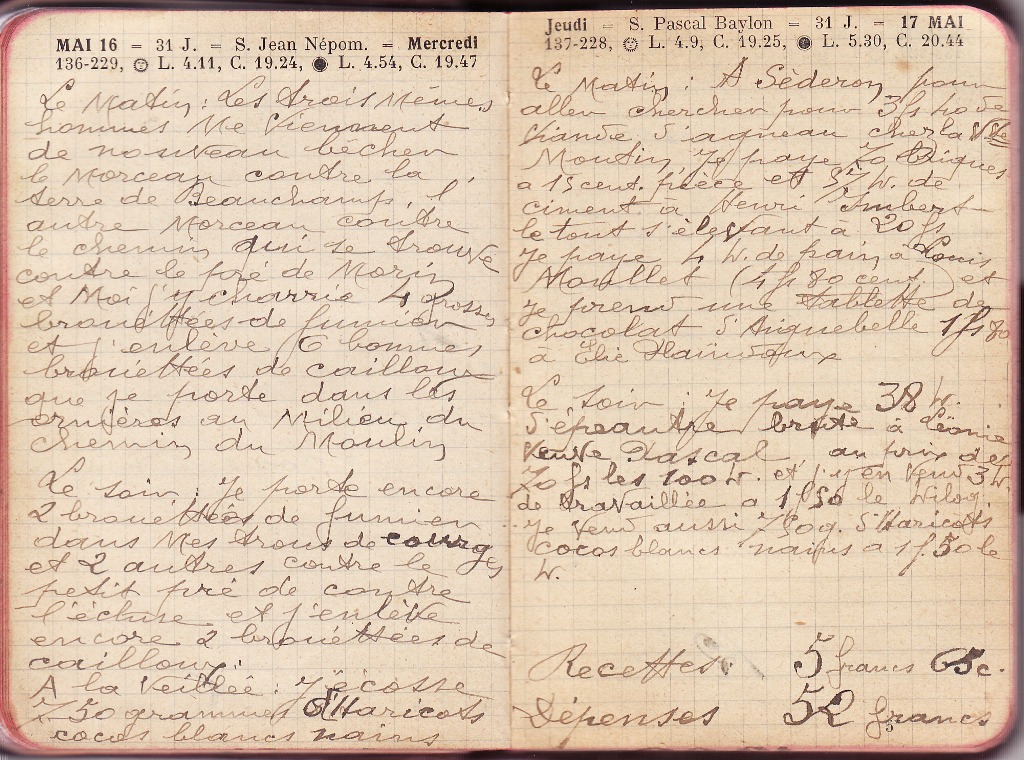 MAI 16 = 31 J. = S. Jean Népom. = Mercredi
136-229, L. 4.11, C. 19.24, L. 4.54, C. 19.47
Le Matin : Les trois Mêmes
hommes Me Viennent
de nouveau bêcher
le Morceau contre la
terre de Beauchamp, l'
autre Morceau contre
le chemin qui se trouve
contre le pré de Morin
et Moi j'y charrie 4 grosses
brouéttées de fumier
et j'enlève 6 bonnes
brouéttées de cailloux
que je porte dans les
ornières au Milieu du
chemin du Moulin
Le soir : Je porte encore
2 brouéttées de fumier
dans Mes trous de courges
et 2 autres contre le
petit pré de contre
l'écluse et j'enlève
encore 2 brouéttées de
cailloux.
A la Veillée : J'écosse
750 grammes d'Haricots
cocos blancs nains
Jeudi = S. Pascal Baylon = 31 J. = 17 MAI
137-228, L. 4.9, C. 19.25, L. 5.30, C. 20.44
Le Matin : A Séderon pour
aller chercher pour 3fs 40 de
Viande d'agneau cher la Vve
Moutin, Je paye 70 Briques
a 15 cent. pièce et 35 K. de
ciment à Henri Imbert
le tout s'élevant à 20 fs
Je paye 4 K. de pain à Louis
Moullet (4f 80 cent.) et
je prend une tablette de
chocolat d'Aiguebelle 1fs 80
à Elie
Le soir : Je paye 38 K.
d'épeautre brute à Léonie
Veuve Pascal au prix de
70 fs les 100 K. et j'y en Vend 3 K.
de travaillée a 1f 50 le Kilog.
Je Vend aussi 750 g. d'Haricots
cocos blancs nains a 1f. 50 le
K.
Recettes : 5 francs 65 c.
Dépenses 52 francs